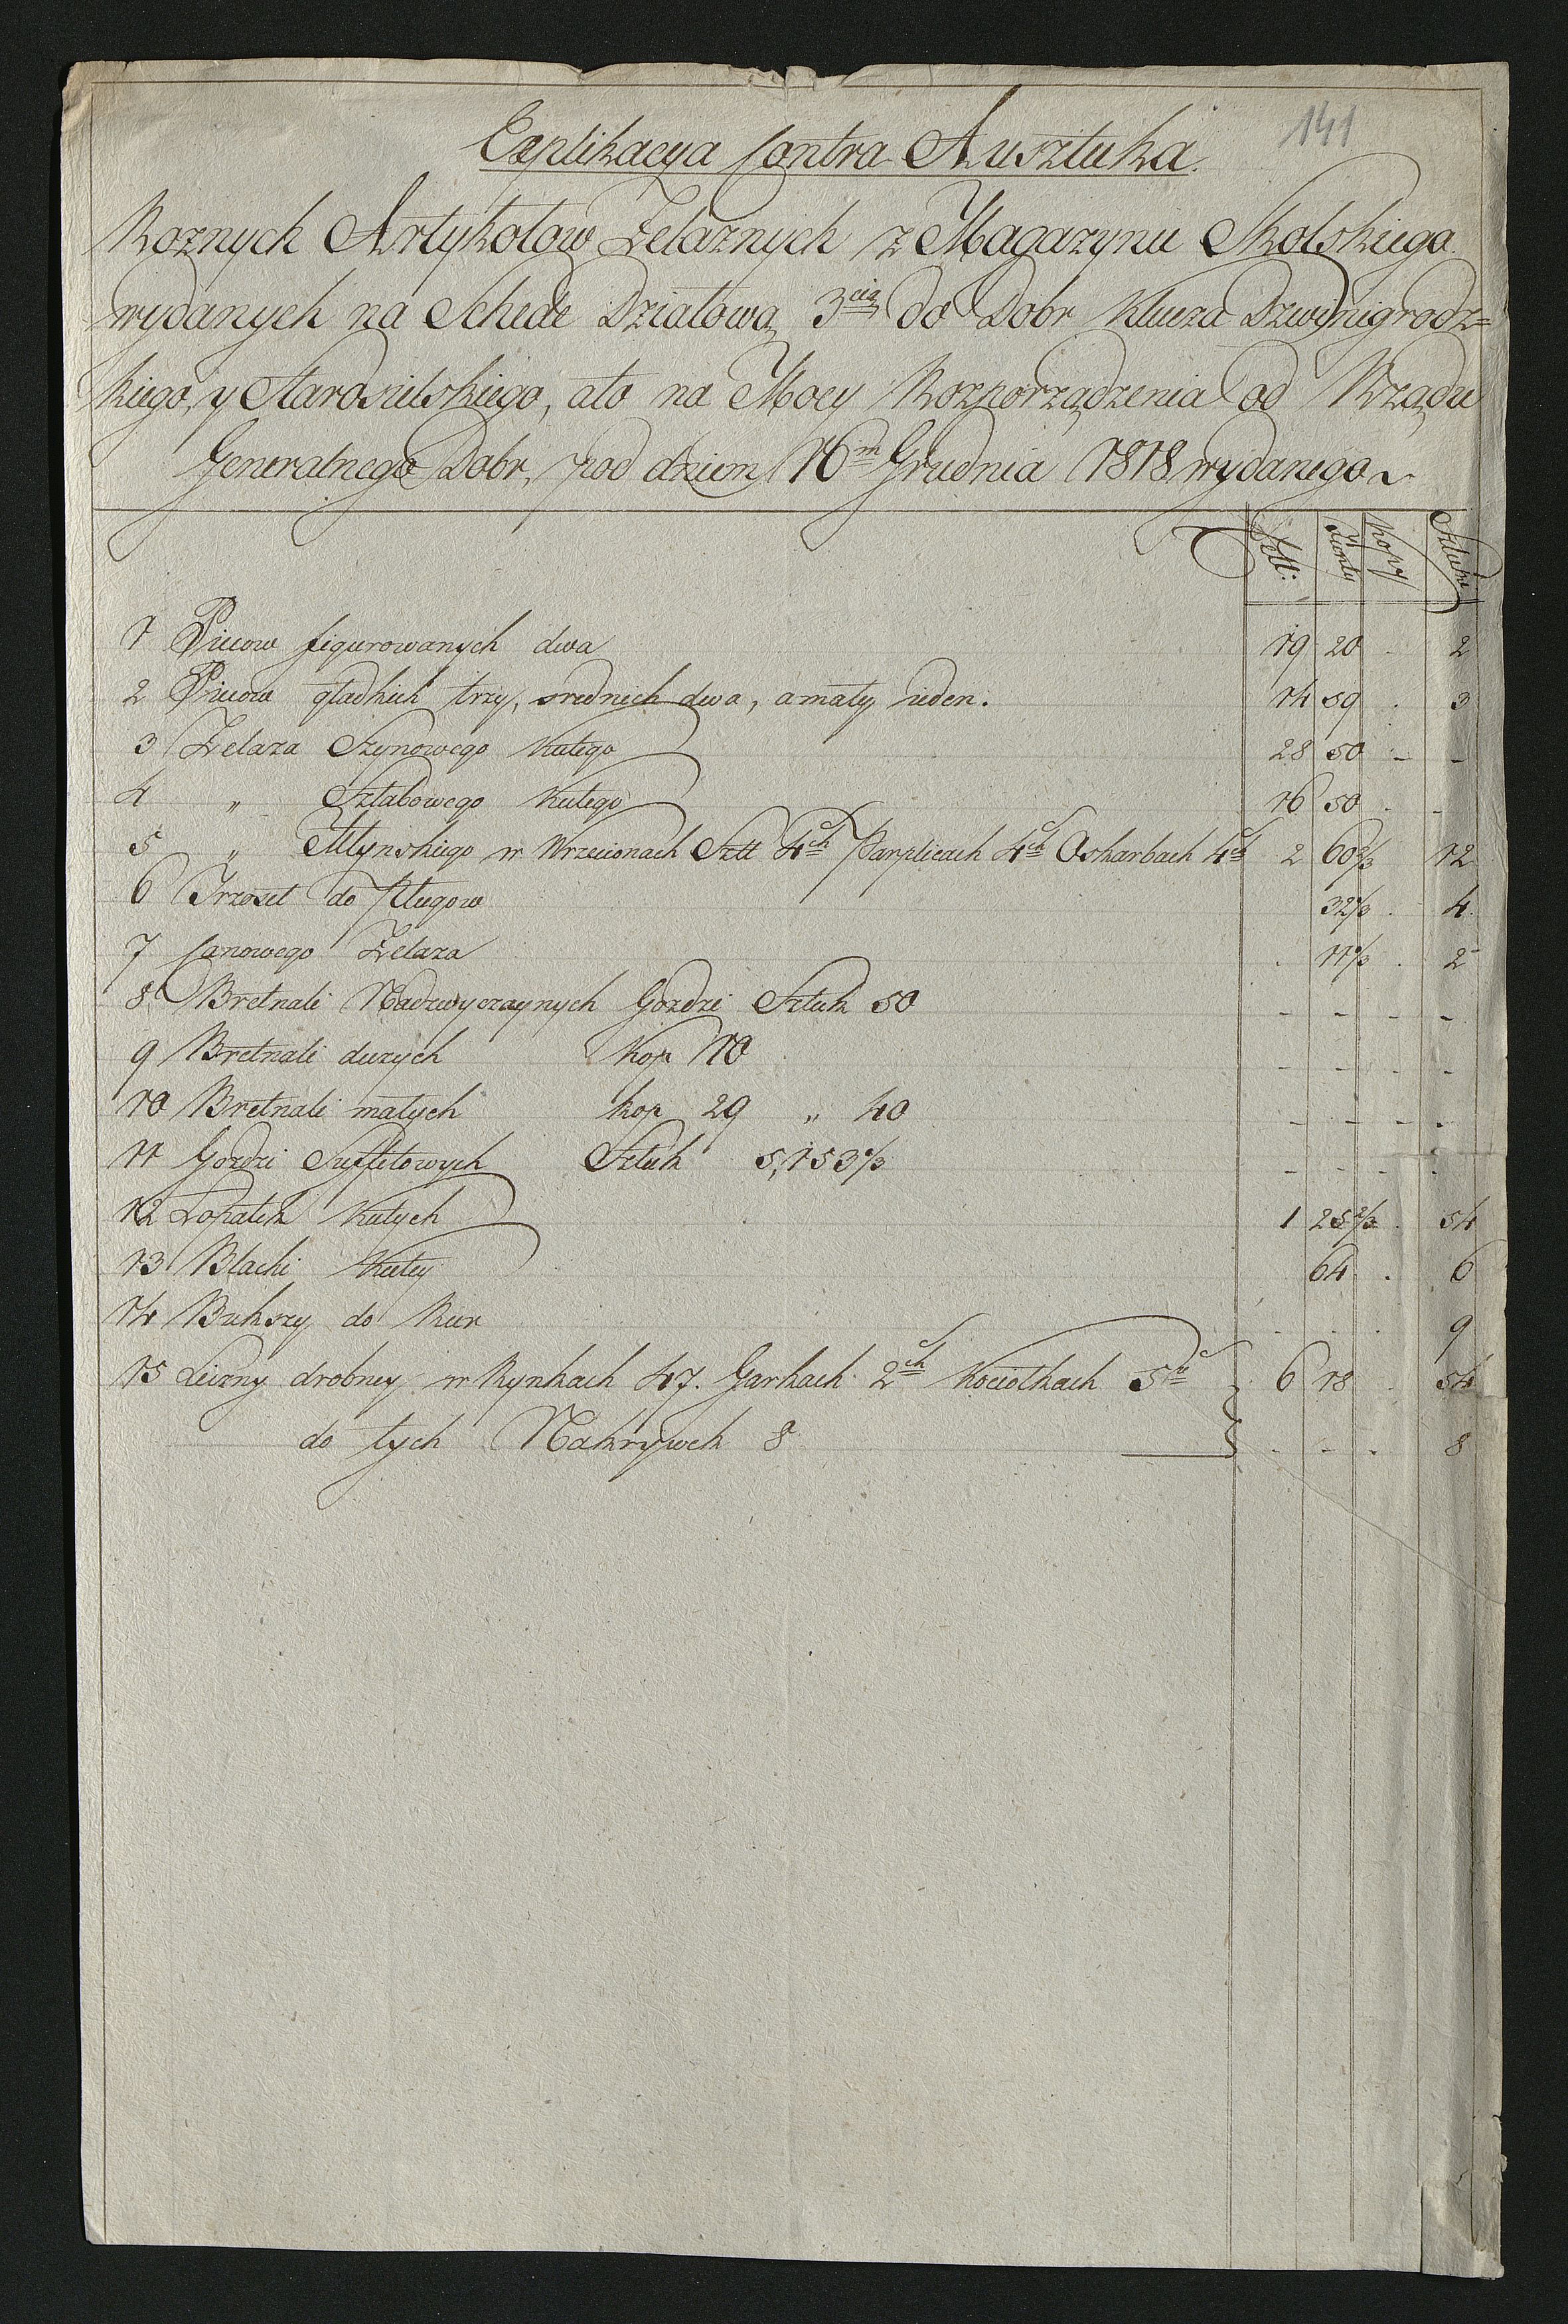 141
Explikacya Contra Ausztuka.
Roznych Artykołow Żelaznych z Magazynu Skolskiego
wydanych na Schede Działową 3cią do Dobr Klucza Dzwinigrodz=
kiego, y Starosielskiego, ato na Mocy Rozporządzenia od Rządu
Generalnego Dobr, pod dniem 16m Grudnia 1818 wydanego
Funty Kopy Sztuki
1 Piecow figurowanych dwa 19 20 . 2
2 Piecow gladkich trzy, srednich dwa, a mały ieden. 14 59 . 3
3 Żelaza Szynowego Kutego 28 50 - -
4 " Sztabowego Kutego 16 50 . -
5 " Młynskiego w Wrzecionach Sztt 4ch Parplicach 4ch Oskarbach 4ch 2 60 2/3 12
6 Trzoseł do Pługow 32 2/3 . 4.
7 Canowego Żelaza . 11 1/3 . 2
8 Bretnali Nadzwyczaynych Gozdzi Sztuk 50 - - - -
9 Bretnali duzych Kop 10 - - - -
10 Bretnali małych kop 29 " 40 - - - -
11 Gozdzi Suffitowych Sztuk 5,153 1/3 - - - -
12 Łopatek Kutych 1 25 2/3 . 54
13 Blachi Kutey 64 . 6
14 Bukszy do Rur . . . 9
15 Leizny drobney w Rynkach 47. Garkach 2ch Kociołkach 5ch 6 18 . 54
do tych Nakrywek 8 . - . 8